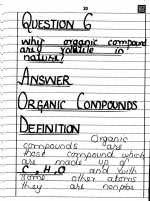 20
QUESTION 6
why organic compound
are volatile in
nature?
ANSWER
ORGANIC COMPOUNDS
DEFINITION
Organic
compounds are
those compound which
are made up of
C, H, O and with
some other atoms
they are nonpolar